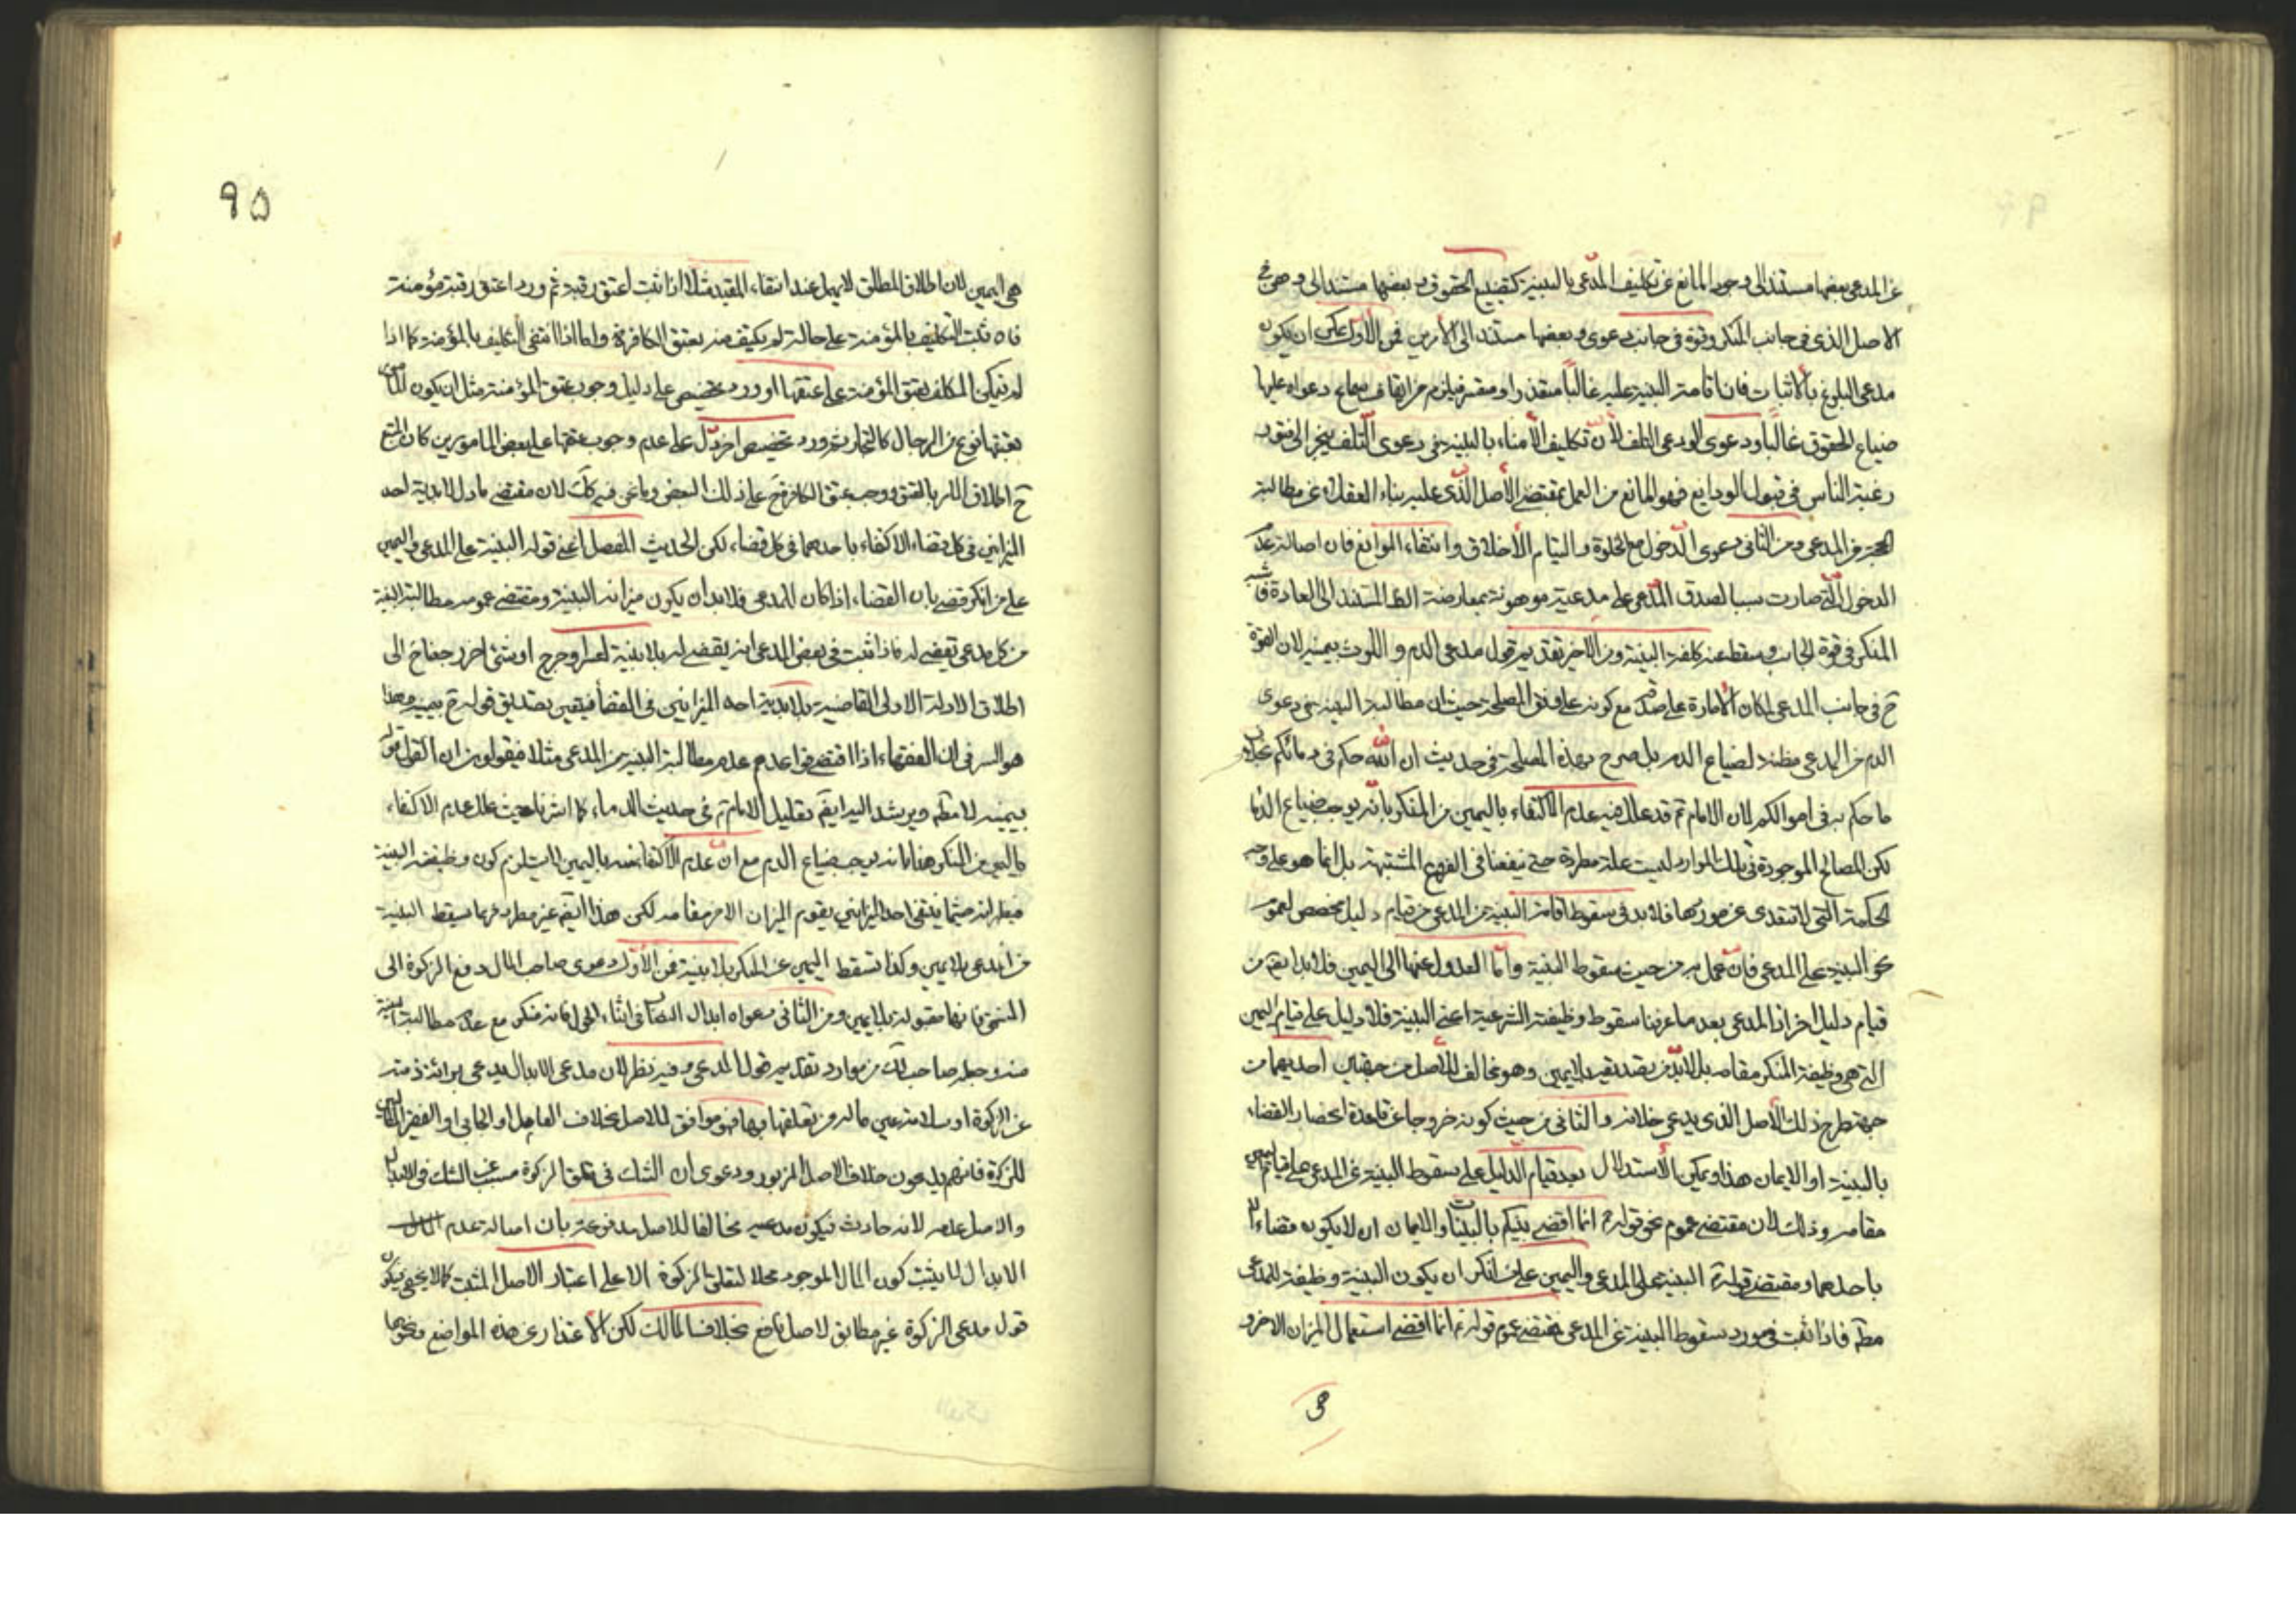 عن المدعى بعضها مستند الى وجود المانع عن تكليف المدّعى بالبينة كتضييع الحقوق و بعضها مستند الى وهن في
الاصل الذى فى جانب المنكر و قوة فى جانب دعوى و بعضها مستند الى الأمرين فمن الأول يمكن ان يكون
مدعى البلوغ بالانبات فان اقامة البينة عليه غالباً متعذر او متعسر فيلزم من ايقاف سماع دعواه عليها
ضياع الحقوق غالباً و دعوى الودعى التلف لأنّ تكليف الأمناء بالبينة فى دعوى التلف ينجر الى فتور
رغبة الناس فى قبول الودايع فهو المانع من العمل بمقتضى الأصل الذّى عليه بناء العقلاء عن مطالبة
الحجة من المدعى و من الثانى دعوى الدّخول مع الخلوة و التيام الأخلاق و انتفاء الموانع فان اصالة عدم
الدخول الّتى صارت سببا لصدق المدّعى على مدعيه موهونة بمعارضة الظ المستند الى العادة فاشبه
المنكر فى قوة الجانب و سقط عنه كلفة البينة و من الاخير تقديم قول مدعى الدم و اللوث بيمينه لان القوة
ح فى جانب المدعى لمكان الأمارة على صدقه مع كونه على وفق المصلحة حيث ان مطالبة البينة فى دعوى
الدم من المدعى مظنة لضياع الدم بل صرح بهذه المصلحة فى حديث ان اللّه حكم فى دمائكم بخلاف
ما حكم به فى اموالكم لان الامام ع قد علل فيه عدم الاكتفاء باليمين من المنكر بانّه يوجب ضياع الدما
لكن المصالح الموجودة فى تلك الموارد ليست علة مطردة حتى ينفعنا فى الفروع المشتبهة بل انما هو على وجه
الحكمة التى لا تتعدى عن موردها فلا بد فى سقوط اقامة البينة من المدعى من قيام دليل مخصص لعموم
نحو البينة على المدعى فان عمل به من حيث سقوط البينة و امّا العدول عنها الى اليمين فلا بد ايضا من
قيام دليل اخر اذ المدعى بعد ما عرفنا سقوط وظيفته الشرعية اعنى البينة فلا دليل على قيام اليمين
التى هى وظيفة المنكر مقامه بل لابدّ من تصديقه بلا يمين و هو مخالف للأصل من جهتين احديهما من
جهة طرح ذلك الأصل الذى يدعى خلافه و الثانى من حيث كونه خروجا عن قاعدة انحصار القضاء
بالبينة او الايمان هذا و يمكن الأستدلال بعد قيام الدليل على سقوط البينة عن المدعى على قيام اليمين
مقامه و ذلك لان مقتضى عموم نحو قوله ص انما اقضى بينكم بالبينات و الايمان ان لا يكون قضاء الا
باحدهما و مقتضى قوله ص البينة على المدعى و اليمين على من انكر ان يكون البينة وظيفة للمدعى
مطه فاذا ثبت فى مورد سقوط البينة عن المدعى فمقتضى عموم قوله ص انما اقضى استعمال الميزان الاخر و
هى
٩٥
هى اليمين لان اطلاق المطلق لا يهمل عند انتفاء المقيد مثلا اذا ثبت اعتق رقبة ثم ورد اعتق رقبة مؤمنة
فان ثبت التكليف بالمؤمنة على حالة لم يكتف منه بعتق الكافرة و اما اذا انتفى التكليف بالمؤمنة كما اذا
لم يتمكن المكلف بعتق المؤمنة على عتقها او ورد تخصيص على دليل وجوب عتق المؤمنة مثل ان يكون المامور
بعتقها نوع من الرجال كالتجار ثم ورد تخصيص اخر دلّ على عدم وجوب عتقها على بعض المامورين كان المتبع
ح اطلاق الامر بالعتق و وجب عتق الكافرة ح على ذلك البعض و ما نحن فيه كك لان مقتضى ما دل لابدية احد
الميزانين فى كل قضاء الاكتفاء باحدهما فى كل قضاء لكن الحديث المفصل اعنى قوله البينة على المدعى و اليمين
على من انكر قضى بان القضاء اذا كان للمدعى فلابد ان يكون ميزانه البينة و مقتضى عمومه مطالبة البينة
من كل مدعى يقضى له فاذا ثبت فى بعض المدعى انه يقضى له بلا بينة لعسر او حرج او شئ اخر رجعنا ح الى
اطلاق الادلة الاولى القاضية بلابدية احد الميزانين فى القضأ فيتعين تصديق قوله ح بيمينه و هذا
هو السر فى ان الفقهاء اذا اقتضى قواعدهم عدم مطالبة البينة من المدعى مثلا فيقولون ان القول قوله
بيمينه لا مطه و يرشد اليه ايضا تعليل الامام ع فى حديث الدماء كما اشرنا حيث علل عدم الاكتفاء
باليمين من المنكر هنا بانه يوجب ضياع الدم مع ان عدم الاكتفا منه باليمين لا يستلزم كون وظيفته البينة
فعلم انه حيثما ينتفى احد الميزانين يقوم الميزان الاخر مقامه لكن هذا ايضا غير مطرد فربما يسقط البينة
من المدعى بلا يمين و كذا تسقط اليمين عن المنكر بلا بينة فمن الأوّل دعوى صاحب المال دفع الزكوة الى
المستحق فانها مقبولة بلا يمين و من الثانى دعواه ابدال النصاب فى اثناء الحول فانه منكر مع عدم مطالبة البينة
منه و جعله صاحب لك من موارد تقديم قول المدعى و فيه نظر لان مدعى الابدال يدعى برائة ذمته
عن الزكوة او سلامة عين ماله من تعلقها بها فهو موافق للاصل بخلاف العامل او الجابى او الفقير المدعين
للزكوة فانهم يدعون خلاف الاصل المزبور و دعوى ان الشك فى تعلق الزكوة مسبب عن الشك فى الابدال
و الاصل عدمه لانه حادث فيكون مدعيه مخالفا للاصل مدفوعة بان اصالة عدم
الابدال لا يثبت كون المال الموجود محلا لتعلق الزكوة الا على اعتبار الاصل المثبت كما لا يخفى فيكون
قول مدعى الزكوة غير مطابق لاصل نافع بخلاف المالك لكن الاعتذار عن هذه المواضع و نحوها